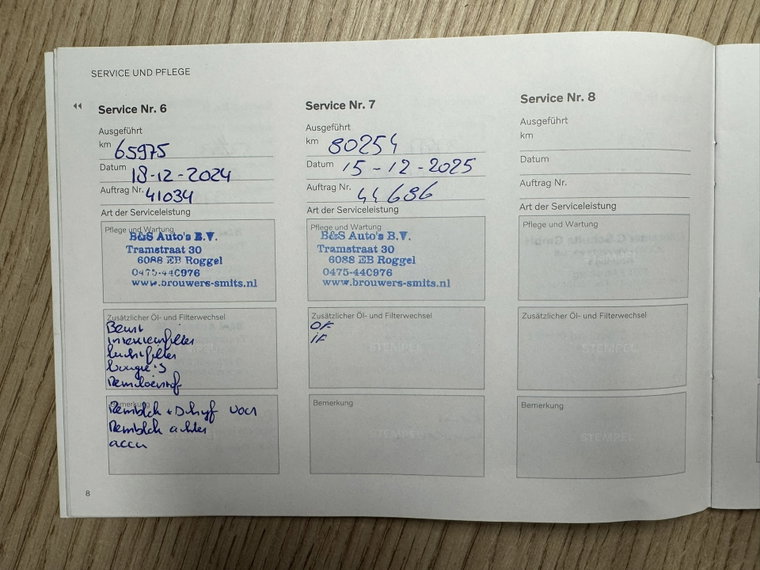 SERVICE UND PFLEGE
Service Nr. 6
Ausgeführt
km 65975
Datum 18-12-2024
Auftrag Nr. 41034
Art der Serviceleistung
Pflege und Wartung
B&S Auto's B.V.
Tramstraat 30
6088 EB Roggel
0475-440976
www.brouwers-smits.nl
Zusätzlicher Öl- und Filterwechsel
Beurt
interieurfilter
luchtfilter
bougie's
Remvloeistof
Bemerkung
Remblok + Schijf voor
Remblok achter
accu
Service Nr. 7
Ausgeführt
km 80254
Datum 15-12-2025
Auftrag Nr. 44686
Art der Serviceleistung
Pflege und Wartung
B&S Auto's B.V.
Tramstraat 30
6088 EB Roggel
0475-440976
www.brouwers-smits.nl
Zusätzlicher Öl- und Filterwechsel
OF
IF
Bemerkung
Service Nr. 8
Ausgeführt
km
Datum
Auftrag Nr.
Art der Serviceleistung
Pflege und Wartung
Zusätzlicher Öl- und Filterwechsel
Bemerkung
8